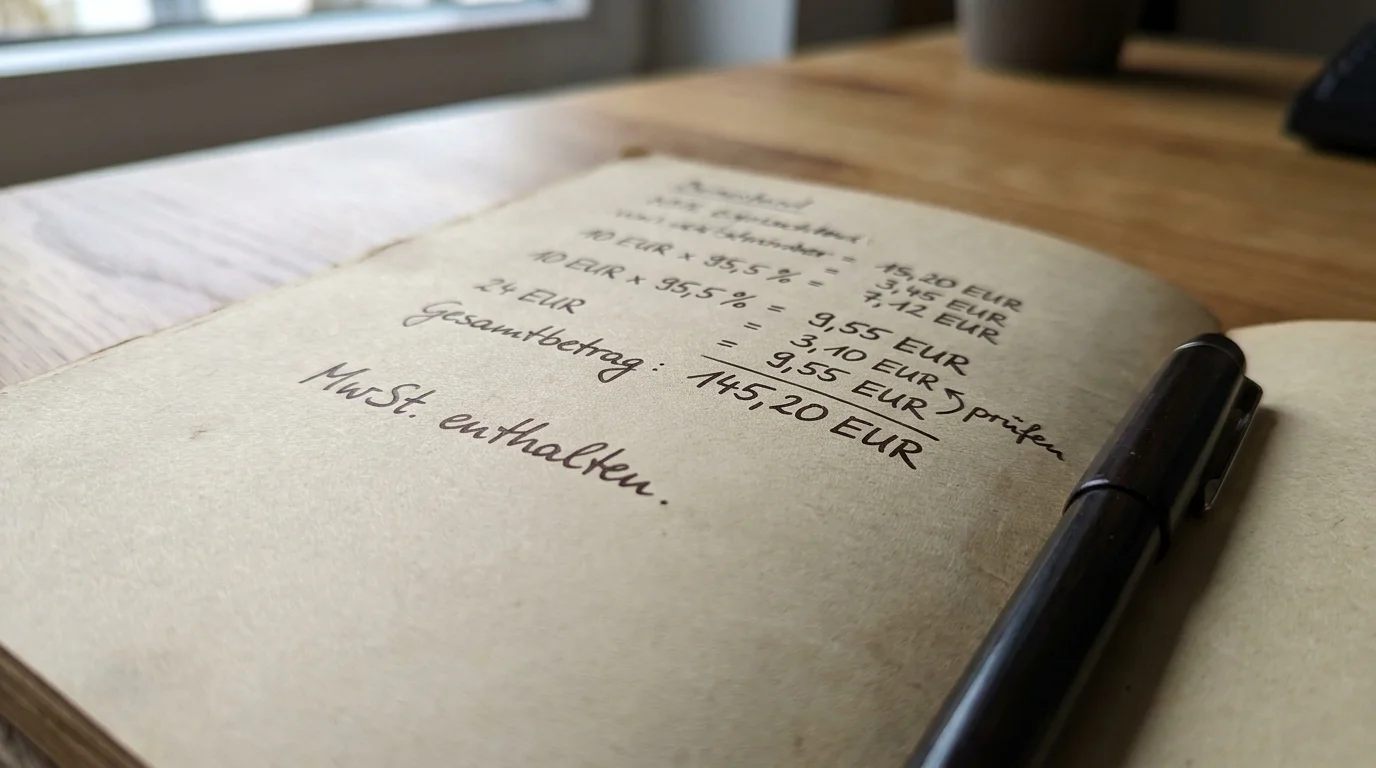 = 15,20 EUR
= 3,45 EUR
10 EUR x 95,5% = 7,12 EUR
10 EUR x 95,5% = 9,55 EUR
24 EUR = 3,10 EUR
= 9,55 EUR prüfen
Gesamtbetrag: 145,20 EUR
MwSt. enthalten.